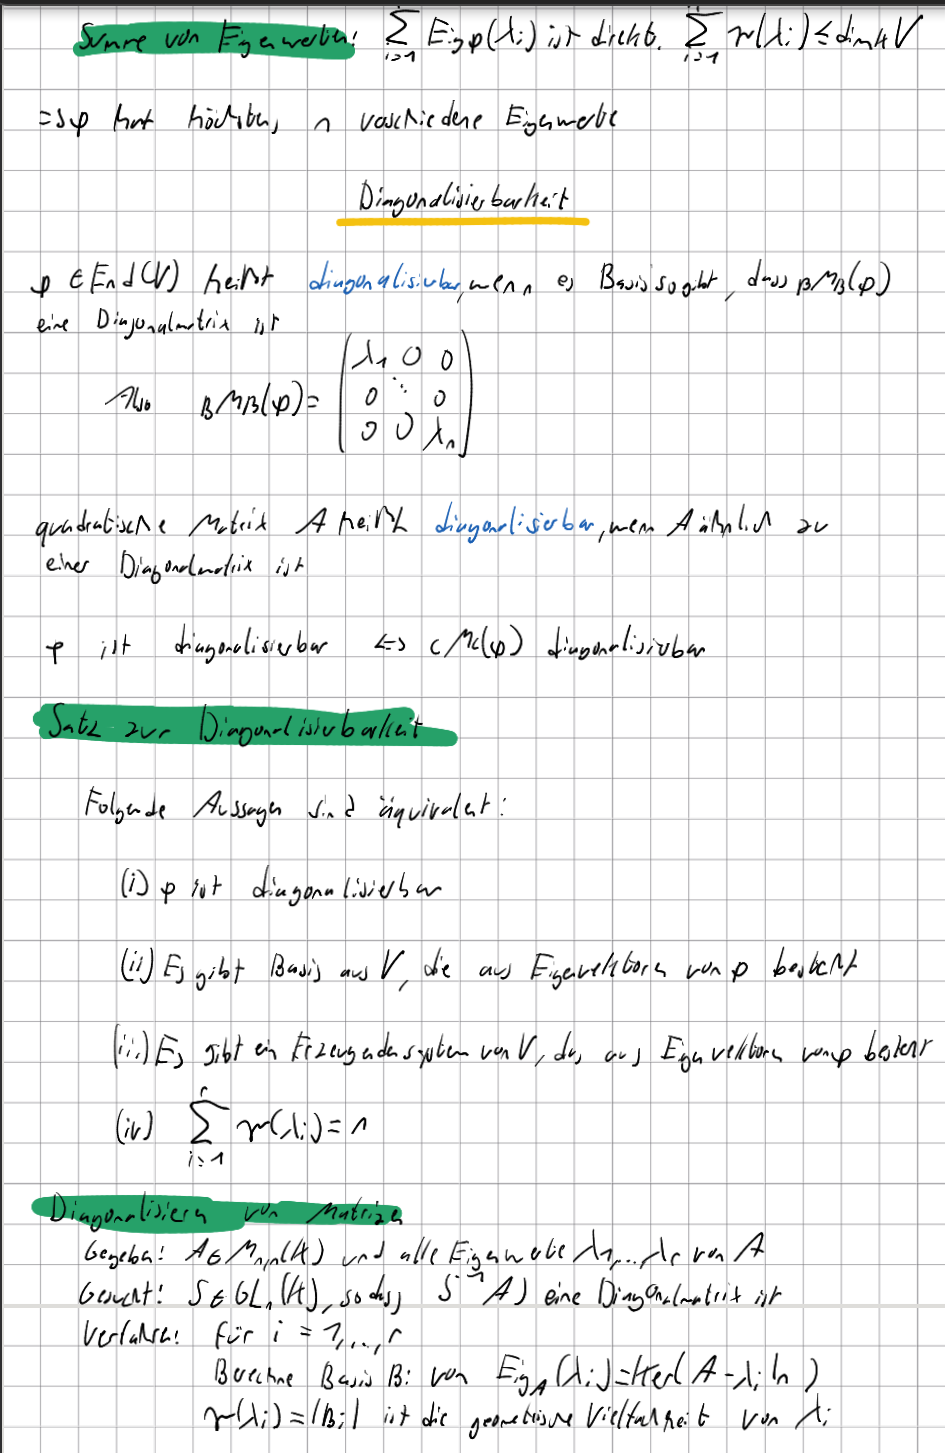 Summe von Eigenwerten: ∑_{i=1}^{r} Eig_φ(λ_i) ist direkt. ∑_{i=1}^{r} γ(λ_i) ≤ dim_K V
=> φ hat höchstens n verschiedene Eigenwerte
Diagonalisierbarkeit
φ ∈ End(V) heißt diagonalisierbar, wenn es Basis so gibt, dass _B M_B(φ)
eine Diagonalmatrix ist
Also _B M_B(φ) = (λ_1 0 0
0 ⋱ 0
0 0 λ_n)
quadratische Matrix A heißt diagonalisierbar, wenn A ähnlich zu
einer Diagonalmatrix ist
φ ist diagonalisierbar <=> _C M_C(φ) diagonalisierbar
Satz zur Diagonalisierbarkeit
Folgende Aussagen sind äquivalent:
(i) φ ist diagonalisierbar
(ii) Es gibt Basis aus V, die aus Eigenvektoren von φ besteht
(iii) Es gibt ein Erzeugendensystem von V, das aus Eigenvektoren von φ besteht
(iv) ∑_{i=1}^{r} γ(λ_i) = n
Diagonalisieren von Matrizen
Gegeben: A ∈ M_{n,n}(K) und alle Eigenwerte λ_1,...,λ_r von A
Gesucht: S ∈ GL_n(K), sodass S^{-1} A S eine Diagonalmatrix ist
Verfahren: Für i = 1,...,r
Berechne Basis B_i von Eig_A(λ_i) = Ker(A - λ_i I_n)
γ(λ_i) = |B_i| ist die geometrische Vielfachheit von λ_i